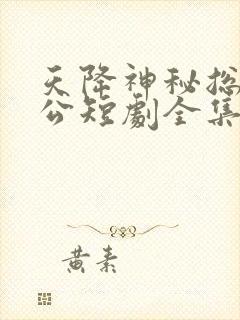 天降神秘总
公短劇全集
黄素